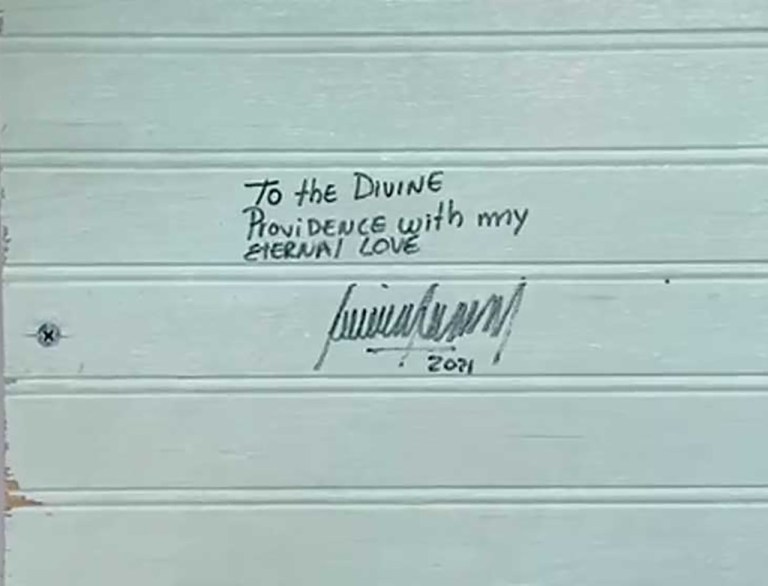 To the DIVINE
ProviDENCE with my
ETERNAl LOVE
2021